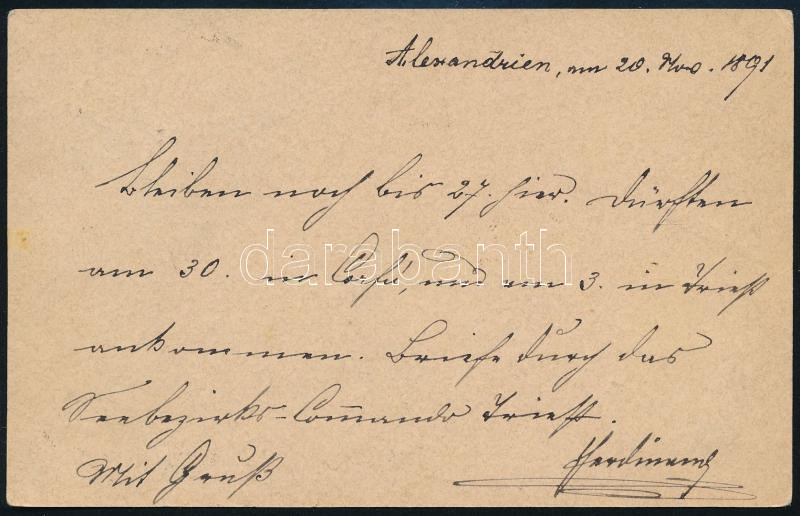 Alexandrien, am 20. Nov. 1891
Bleiben noch bis 27. hier. Dürften
am 30. in Corfu, und am 3. in Triest
ankommen. Briefe durch das
Seebezirks-Com̅ando Triest.
Mit Gruß
Ferdinand
darabanth